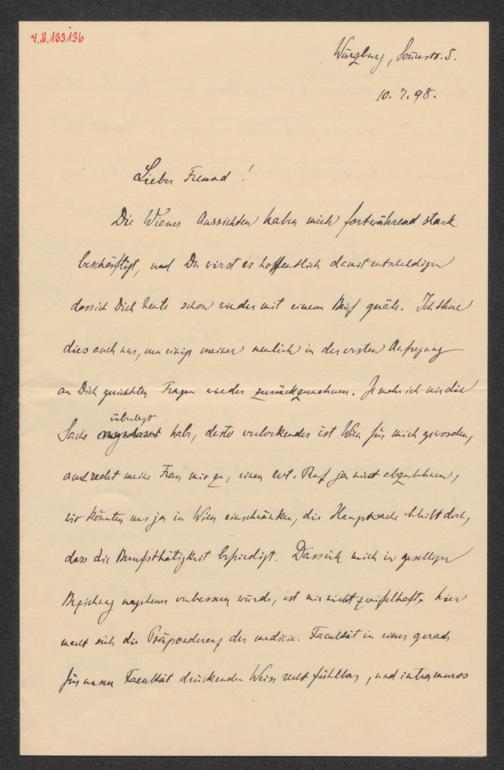 Würzburg, Sonnstr. 5.
10. 7. 98.
Lieber Freund!
Die Wiener Aussichten haben mich fortwährend stark
beschäftigt, und Du wirst es hoffentlich damit entschuldigen
dass ich Dich heute schon wieder mit einem Brief quäle. Ich thue
dies auch nur, um einige meiner neulich in der ersten Aufregung
an Dich gerichteten Fragen wieder zurückzunehmen. Je mehr ich mir die
Sache überlegt habe, desto verlockender ist Wien für mich geworden,
auch redet meine Frau mir zu, einen evt. Ruf ja nicht abzulehnen,
wir könnten uns ja in Wien einschränken, die Hauptsache bleibt doch,
dass die Berufsthätigkeit befriedigt. Dass ich mich in geselliger
Beziehung ungeheuer verbessern würde, ist mir nicht zweifelhaft. hier
macht sich die Präponderenz der medicin. Facultät in einer gerade
für unsere Facultät drückenden Weise recht fühlbar, und intra muros